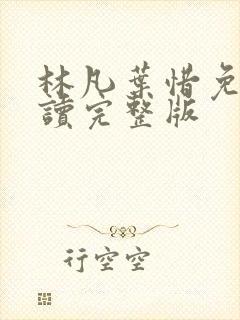 林凡葉惜免
讀完整版
行空空